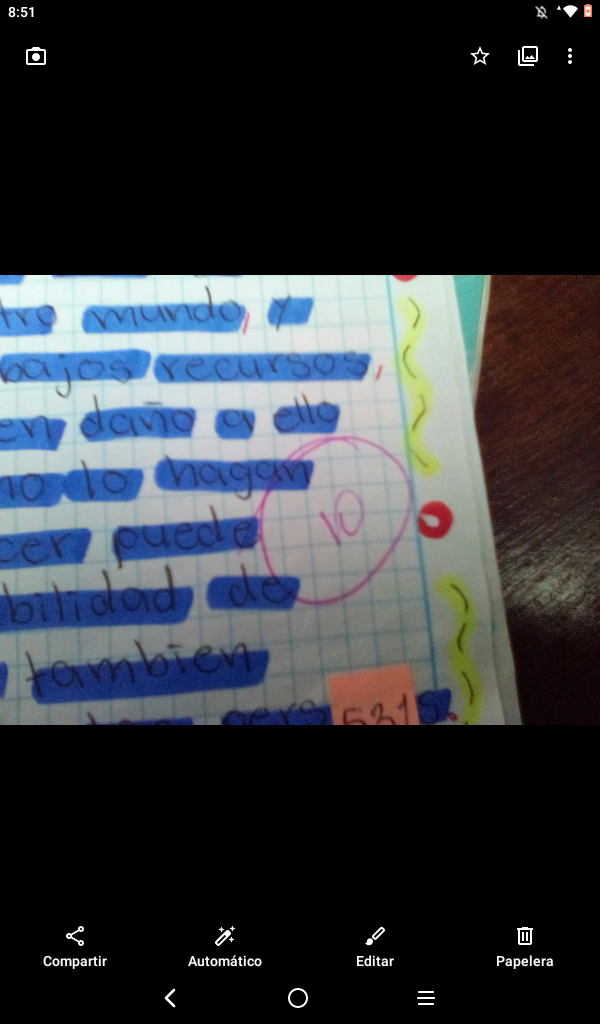 8:51
tro mundo, y
bajos recursos,
en daño a ello
no lo hagan
10
cer puede
bilidad de
tambien
pers 531s.
Compartir
Automático
Editar
Papelera